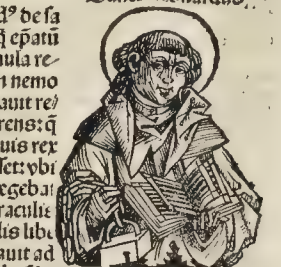 dꝰ de ſa
q̄ ep̄atū
nula re-
n nemo
auit re/
rens: q̄
uis rex
ſet: vbi
egebat
raculis
lis libe
auit ad